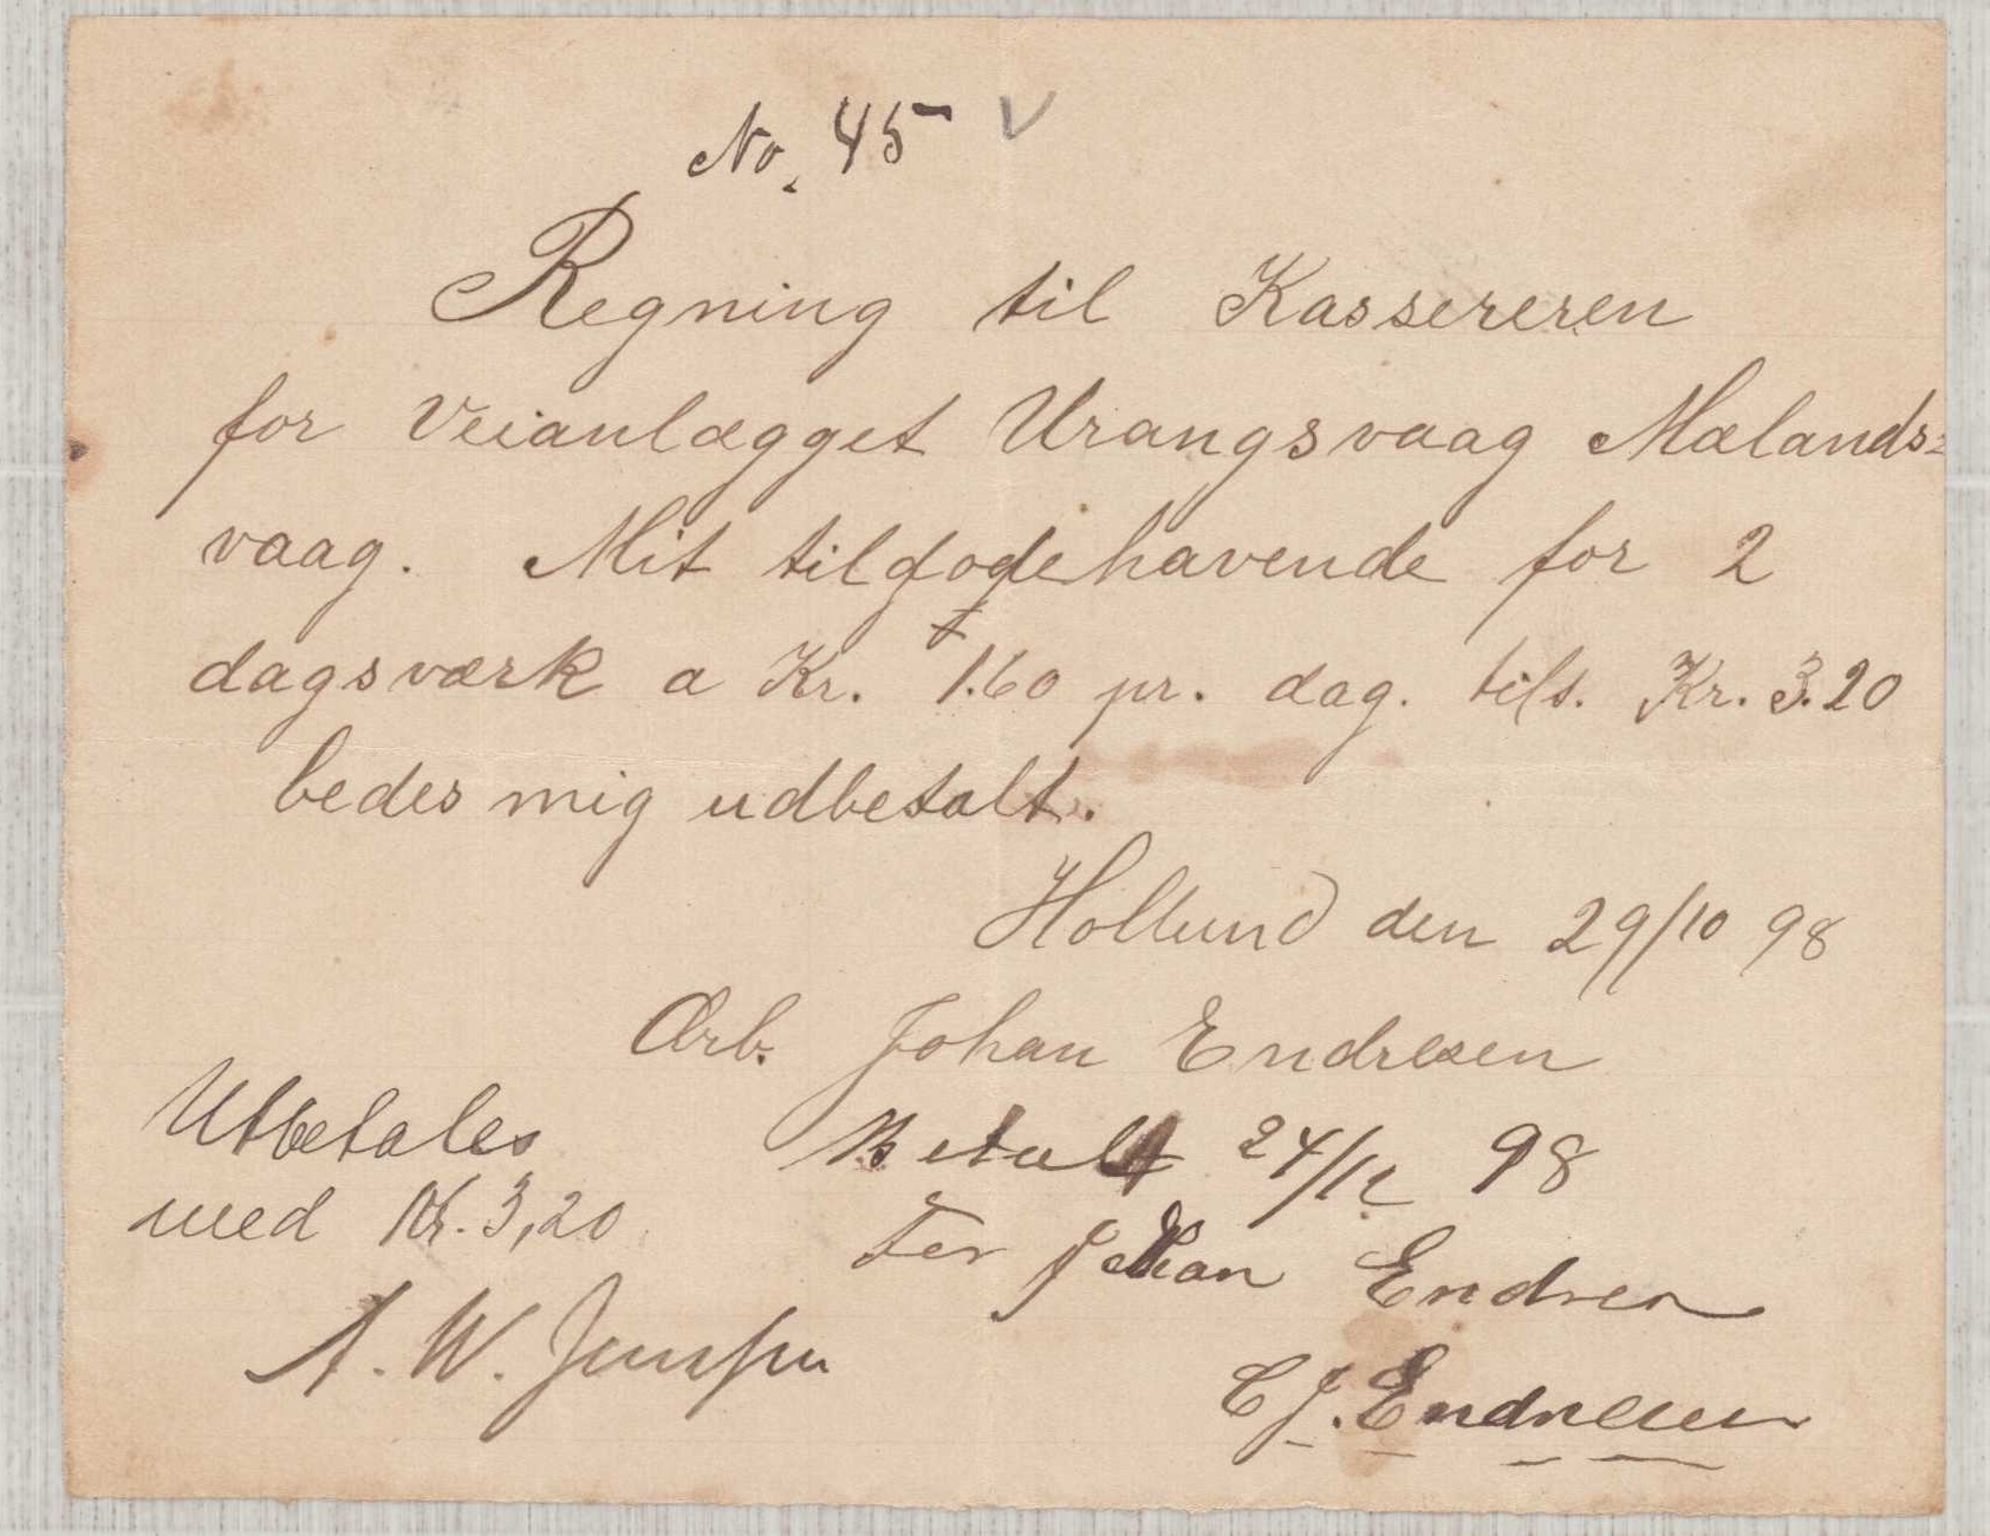 No. 45 V
Regning til Kassereren
for Veianlægget Urangsvaag Mælands=
vaag. Mit tilgodehavende for 2
dagsværk a Kr. 1.60 pr. dag. tils. Kr. 3.20
bedes mig udbetalt.
Hollund den 29/10 98
Arb. Johan Endresen
Utbetales
med Kr. 3,20
A. W. Jensen
Betalt 24/12 98
For Johan Endresen
C J. Endresen